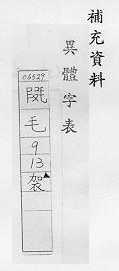 補充資料
異體字表
06529
毛
9
13
袈